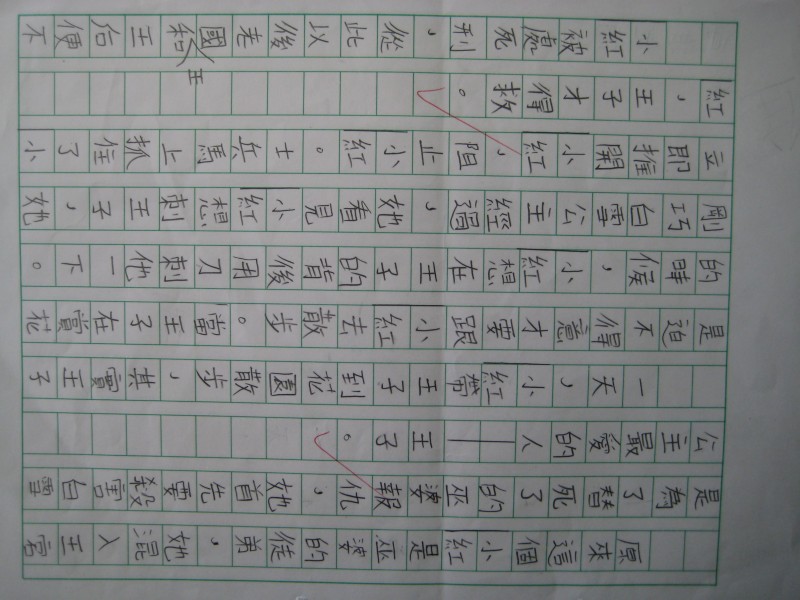 原來這個小紅是巫婆的徒弟，她混入王宮
是為了替死了的巫婆報仇，她首先要殺害白雪
公主最愛的人——王子。
一天，小紅帶王子到花園散步，其實王子
是迫不得意才要跟小紅去散步。當王子在賞花
的時候，小紅想在王子的背後用刀刺他一下。
剛巧白雪公主經過，她看見小紅想刺王子，她
立即推開小紅，阻止小紅。士兵馬上抓住了小
紅，王子才得救。
小紅被處死利，從此以後老國王和王后便不